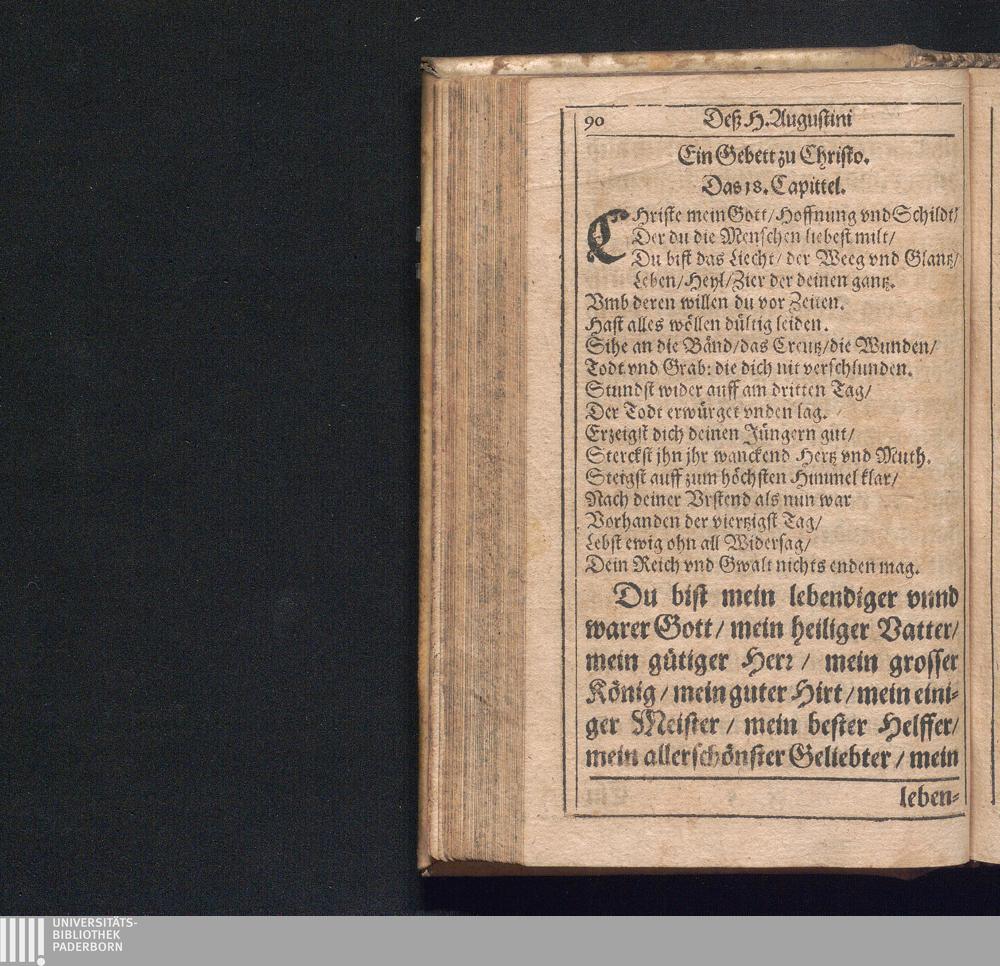 90 Deß H. Augustini
Ein Gebett zu Christo.
Das 18. Capittel.
CHriste mein Gott/ Hoffnung vnd Schildt/
Der du die Menschen liebest milt/
Du bist das Liecht/ der Weeg vnd Glantz/
Leben/ Heyl/ Zier der deinen gantz.
Vmb deren willen du vor Zeiten.
Hast alles wöllen dültig leiden.
Sihe an die Bänd/ das Creutz/ die Wunden/
Todt vnd Grab: die dich nit verschlunden.
Stundst wider auff am dritten Tag/
Der Todt erwürget vnden lag.
Erzeigst dich deinen Jüngern gut/
Sterckst jhn jhr wanckend Hertz vnd Muth.
Steigst auff zum höchsten Himmel klar/
Nach deiner Vrstend als nun war
Vorhanden der viertzigst Tag/
Lebst ewig ohn all Widersag/
Dein Reich vnd Gwalt nichts enden mag.
Du bist mein lebendiger vnnd
warer Gott/ mein heiliger Vatter/
mein gütiger Herr/ mein grosser
König/ mein guter Hirt/ mein eini-
ger Meister/ mein bester Helffer/
mein allerschönster Geliebter/ mein
leben-
UNIVERSITÄTS-
BIBLIOTHEK
PADERBORN